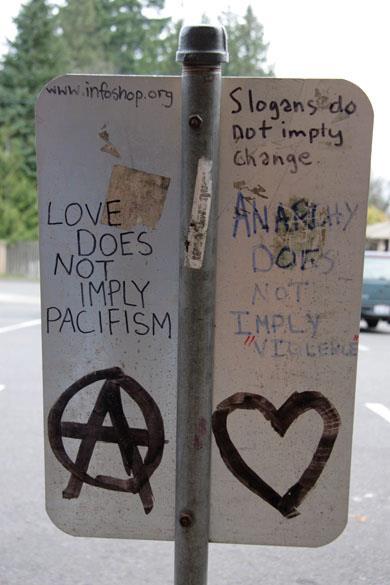 www.infoshop.org
Slogans do
not imply
change.
LOVE
DOES
NOT
IMPLY
PACIFISM
ANARCHY
DOES
NOT
IMPLY
"VIOLENCE"